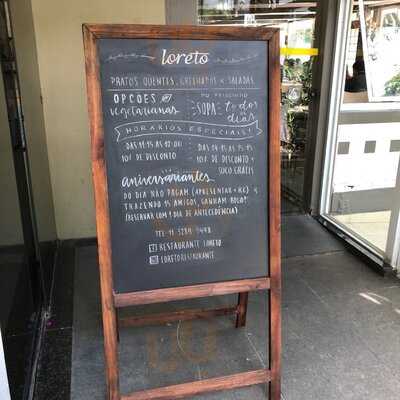 loreto
PRATOS QUENTES, GRELHADOS e SALADAS
OPÇÕES
vegetarianas
NO FRIOZINHO
SOPA todos
os
dias
HORÁRIOS ESPECIAIS!
DAS
10% DE DESCONTO
DAS 14:15 ÀS 15:15
10% DE DESCONTO +
SUCO GRÁTIS
aniversariantes
DO DIA NÃO PAGAM (APRESENTAR RG) e
TRAZENDO 15 AMIGOS, GANHAM BOLO!
(RESERVAR COM 1 DIA DE ANTECEDÊNCIA)
TEL: 11
RESTAURANTE LORETO
LORETORESTAURANTE